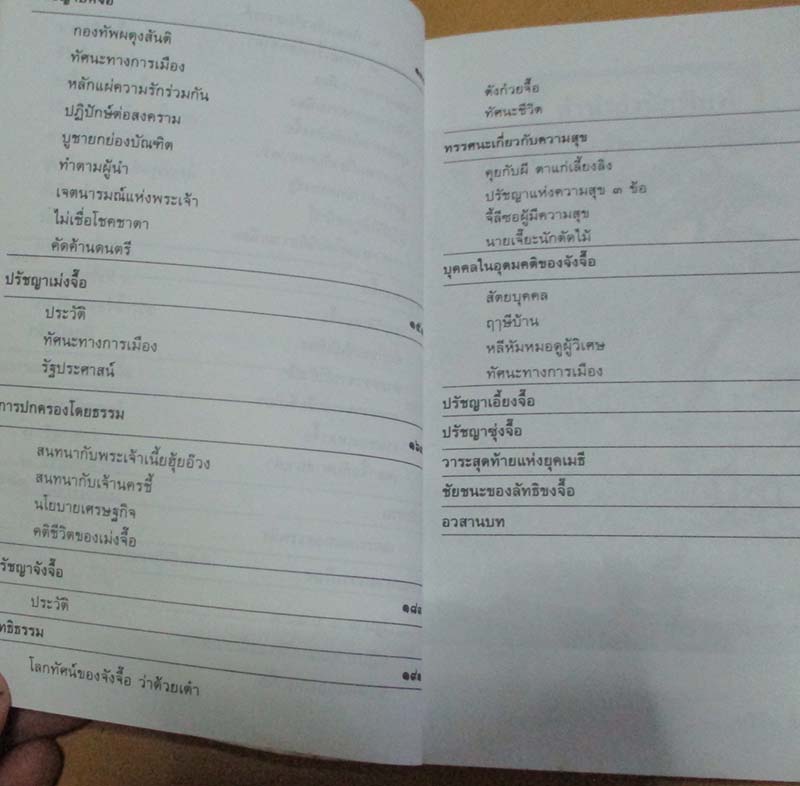 กองทัพผดุงสันติ
ทัศนะทางการเมือง
หลักแผ่ความรักร่วมกัน
ปฏิปักษ์ต่อสงคราม
บูชายกย่องบัณฑิต
ทำตามผู้นำ
เจตนารมณ์แห่งพระเจ้า
ไม่เชื่อโชคชาตา
คัดค้านดนตรี
ปรัชญาเม่งจื๊อ
ประวัติ
ทัศนะทางการเมือง
รัฐประศาสน์
การปกครองโดยธรรม
สนทนากับพระเจ้าเนี้ยฮุ้ยอ๊วง
สนทนากับเจ้านครชี้
นโยบายเศรษฐกิจ
คติชีวิตของเม่งจื๊อ
รัชญาจังจื๊อ
ประวัติ
ทธิธรรม
โลกทัศน์ของจังจื๊อ ว่าด้วยเต๋า
ตังก๋วยจื๊อ
ทัศนะชีวิต
ทรรศนะเกี่ยวกับความสุข
คุยกับผี ตาแก่เลี้ยงลิง
ปรัชญาแห่งความสุข ๓ ข้อ
จี้ลีซอผู้มีความสุข
นายเจี๊ยะนักตัดไม้
บุคคลในอุดมคติของจังจื๊อ
สัตยบุคคล
ฤๅษีบ้าน
หลีหัมหมอดูผู้วิเศษ
ทัศนะทางการเมือง
ปรัชญาเอี้ยงจื๊อ
ปรัชญาซุ่งจื๊อ
วาระสุดท้ายแห่งยุคเมธี
ชัยชนะของลัทธิขงจื๊อ
อวสานบท